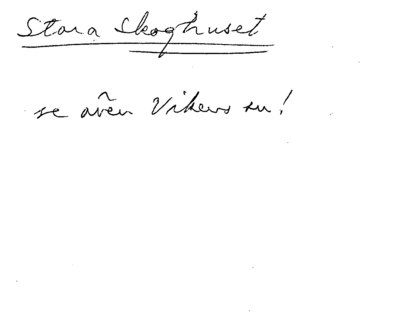 Stora Skoghuset
se även Vikens su!